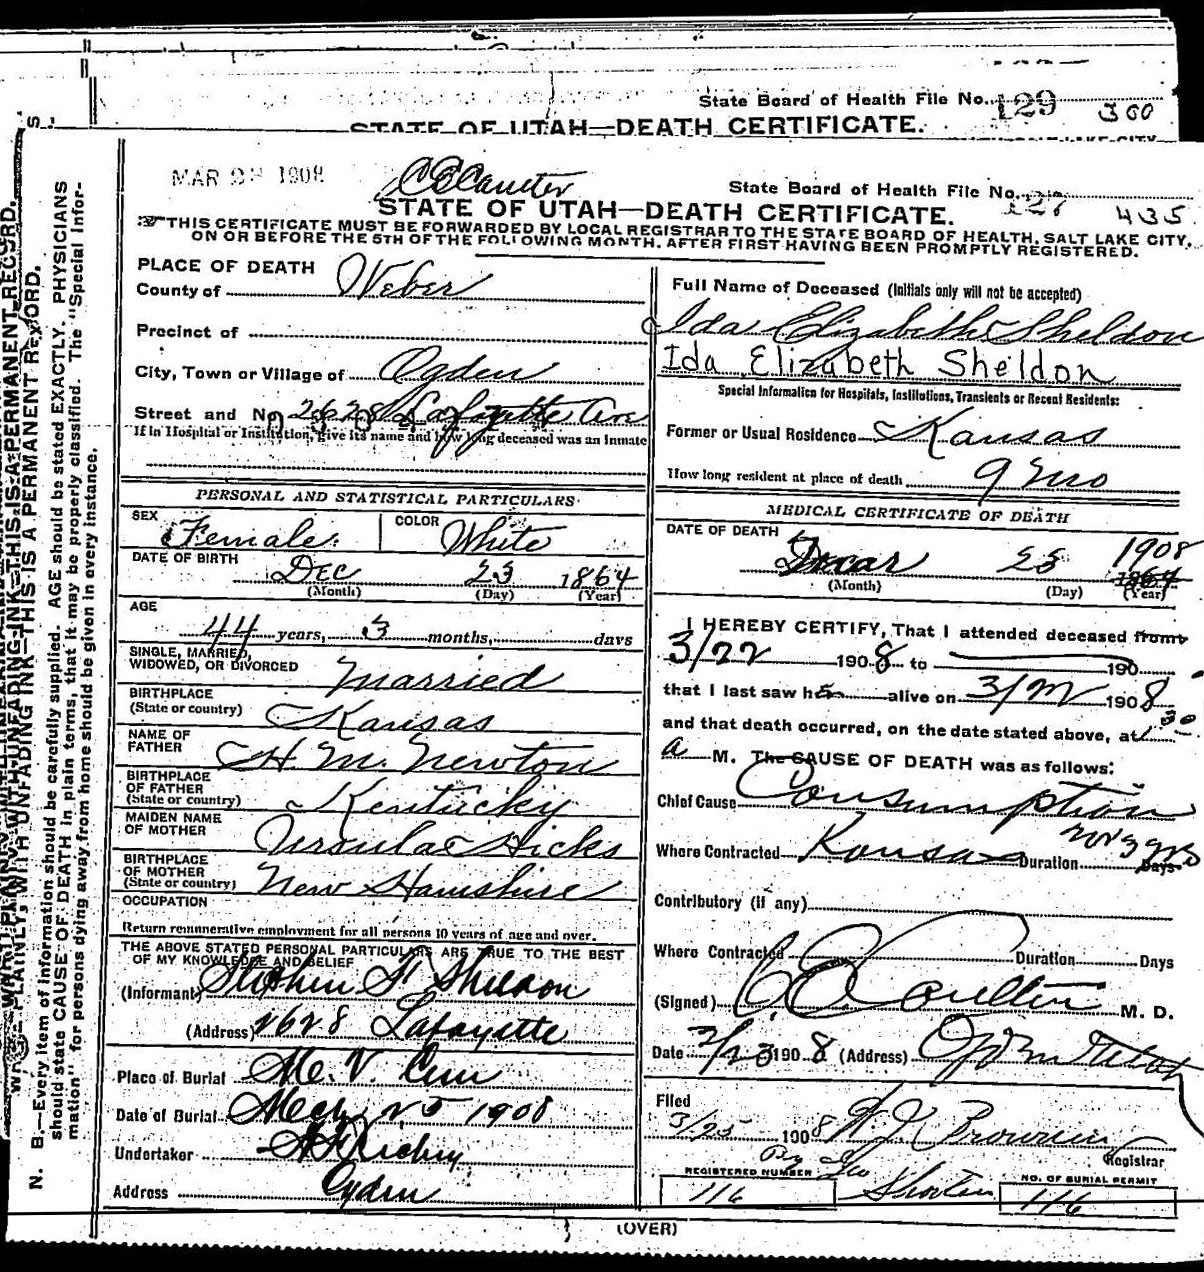 State Board of Health File No. 129 300
STATE OF UTAH—DEATH CERTIFICATE.
MAR 1908
State Board of Health File No. 127 435
STATE OF UTAH—DEATH CERTIFICATE.
THIS CERTIFICATE MUST BE FORWARDED BY LOCAL REGISTRAR TO THE STATE BOARD OF HEALTH, SALT LAKE CITY,
ON OR BEFORE THE 5TH OF THE FOLLOWING MONTH, AFTER FIRST HAVING BEEN PROMPTLY REGISTERED.
PLACE OF DEATH
County of Weber
Precinct of
City, Town or Village of Ogden
Street and No. 2628 Lafayette Ave
If in Hospital or Institution, give its name and how long deceased was an Inmate
PERSONAL AND STATISTICAL PARTICULARS
SEX Female COLOR White
DATE OF BIRTH
Dec 23 1864
(Month) (Day) (Year)
AGE
44 years, 3 months, days
SINGLE, MARRIED,
WIDOWED, OR DIVORCED Married
BIRTHPLACE
(State or country) Kansas
NAME OF
FATHER H. M. Newton
BIRTHPLACE
OF FATHER
(State or country) Kentucky
MAIDEN NAME
OF MOTHER Ursula Hicks
BIRTHPLACE
OF MOTHER
(State or country) New Hamshire
OCCUPATION
Return remunerative employment for all persons 10 years of age and over.
THE ABOVE STATED PERSONAL PARTICULARS ARE TRUE TO THE BEST
OF MY KNOWLEDGE AND BELIEF
(Informant) Stephen F. Sheldon
(Address) 2628 Lafayette
Place of Burial Mt. V. Cem
Date of Burial Mch 25 1908
Undertaker
Address Ogden
Full Name of Deceased (Initials only will not be accepted)
Ida Elizabeth Sheldon
Ida Elizabeth Sheldon
Special Information for Hospitals, Institutions, Transients or Recent Residents:
Former or Usual Residence Kansas
How long resident at place of death 9 mo
MEDICAL CERTIFICATE OF DEATH
DATE OF DEATH
Mar 23 1908
1864
(Month) (Day) (Year)
I HEREBY CERTIFY, That I attended deceased from
3/22 1908 to 190
that I last saw her alive on 3/22 1908
and that death occurred, on the date stated above, at 1:30
a M. The CAUSE OF DEATH was as follows:
Chief Cause Consumption
Where Contracted Kansas Duration 2 or 3 yrs Days
Contributory (if any)
Where Contracted Duration Days
(Signed) M. D.
Date 3/23 1908 (Address) Ogden Utah
Filed
3/25 1908 Browning
Registrar
By Geo Shorten
REGISTERED NUMBER
116
NO. OF BURIAL PERMIT
116
(OVER)
WRITE PLAINLY, WITH UNFADING INK—THIS IS A PERMANENT RECORD.
N. B.—Every item of information should be carefully supplied. AGE should be stated EXACTLY. PHYSICIANS
should state CAUSE OF DEATH in plain terms, that it may be properly classified. The "Special Infor-
mation" for persons dying away from home should be given in every instance.